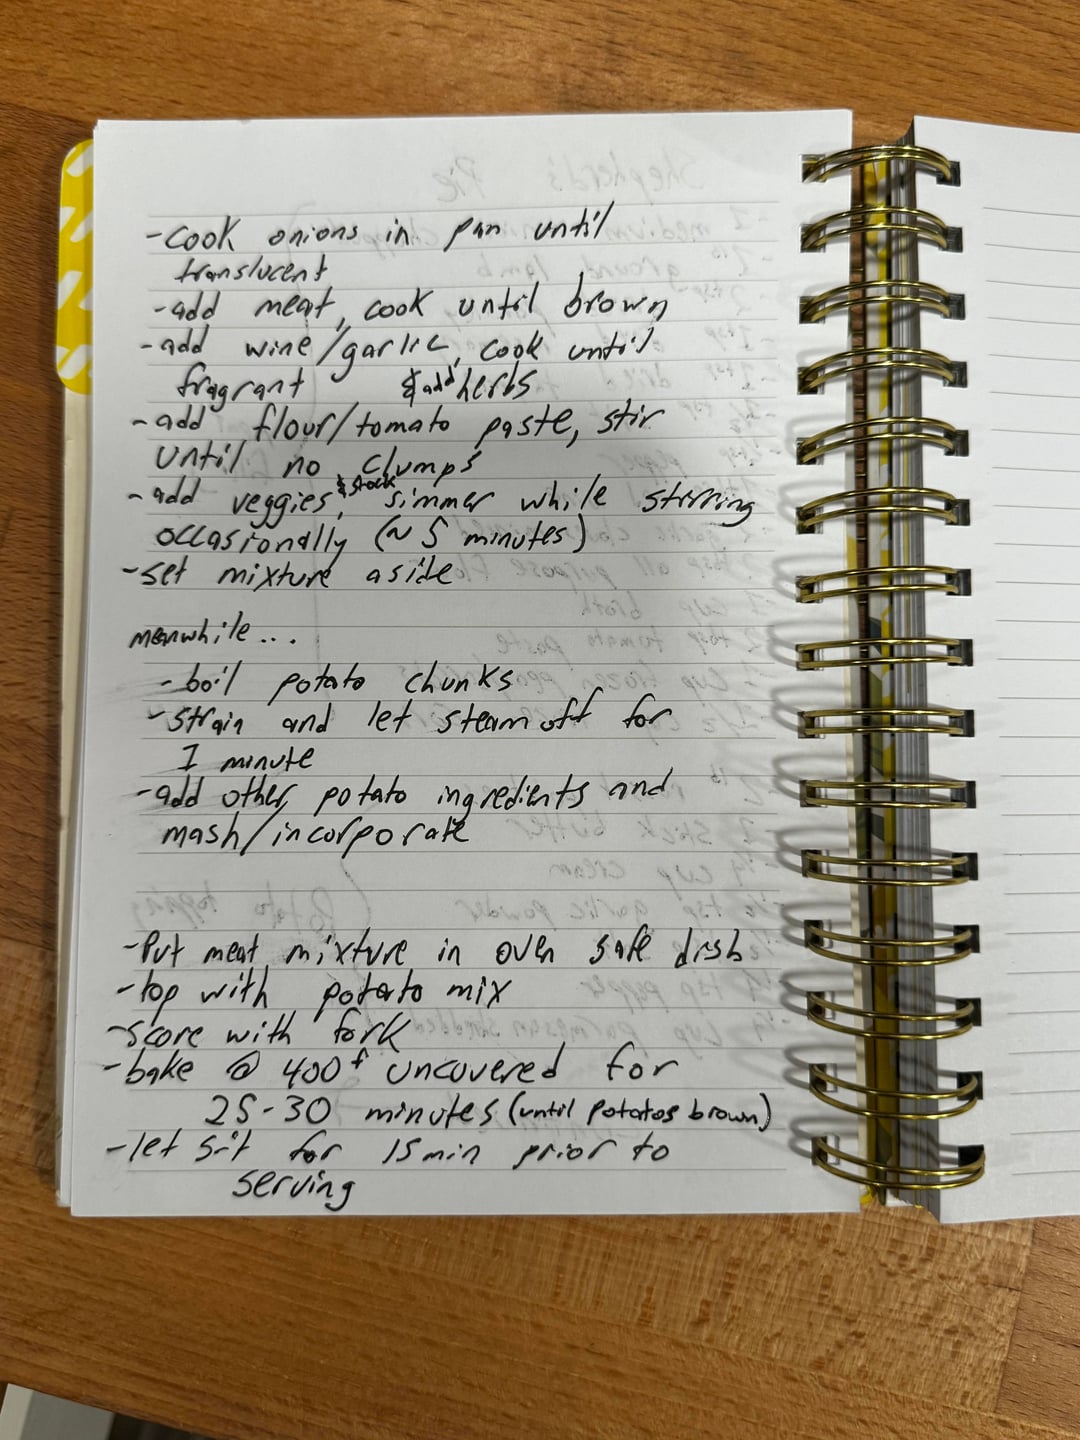 -cook onions in pan until
translucent
-add meat, cook until brown
-add wine/garlic, cook until
fragrant & add herbs
-add flour/tomato paste, stir
until no clumps
-add veggies, & stock simmer while stirring
occasionally (~5 minutes)
-set mixture aside
meanwhile...
-boil potato chunks
-strain and let steam off for
1 minute
-add other potato ingredients and
mash/incorporate
-Put meat mixture in oven safe dish
-top with potato mix
-score with fork
-bake @ 400°f uncovered for
25-30 minutes (until potatos brown)
-let sit for 15 min prior to
serving